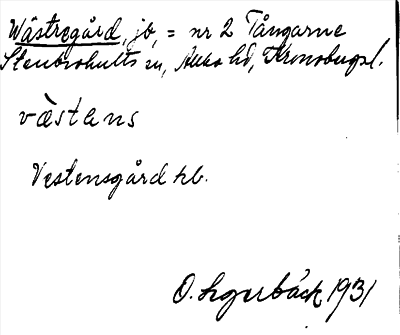 Wästregård, jb, = nr 2 Tångarne
Stenbrohults sn, Allbo hd, Kronobergs l.
västens
Vestensgård kb.
O. Lagerbäck 1931